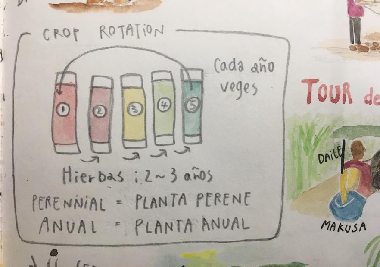 CROP ROTATION
1 2 3 4 5
Cada año
veges
Hierbas : 2~3 años
PERENNIAL = PLANTA PERENE
ANUAL = PLANTA ANUAL
TOUR de
DAILE
MAKUSA